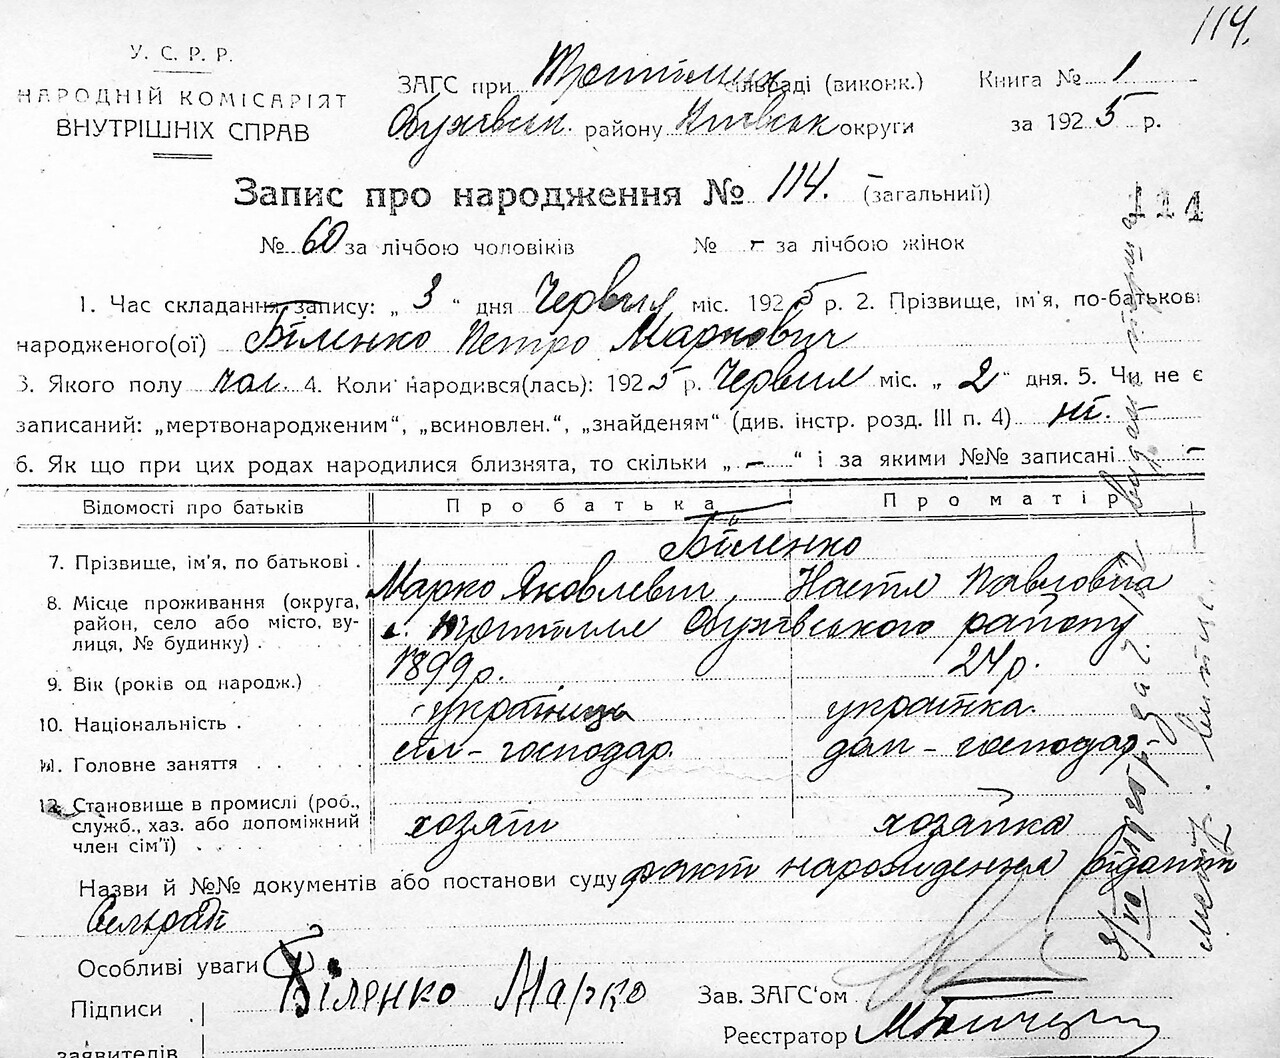 114.
У. С. Р. Р.
НАРОДНІЙ КОМІСАРІЯТ
ВНУТРІШНІХ СПРАВ
ЗАГС при сільраді (виконк.)
Книга № 1
Обухівськ. району Київськ округи
за 1925 р.
Запис про народження № 114. (загальний)
114
№ 60 за лічбою чоловіків № - за лічбою жінок
1. Час складання запису: „ 3 “ дня Червня міс. 1925 р. 2. Прізвище, ім'я, по-батькові
народженого(ої) Біленко Петро Маркович
3. Якого полу чол. 4. Коли народився(лась): 1925 р. Червня міс. „ 2 “ дня. 5. Чи не є
записаний: „мертвонародженим“, „всиновлен.“, „знайденям“ (див. інстр. розд. III п. 4) ні.
6. Як що при цих родах народилися близнята, то скільки „ - “ і за якими №№ записані -
Відомості про батьків
Про батька
Про матір
7. Прізвище, ім'я, по батькові .
Біленко
Марко Яковлевич, Настя Павловна
8. Місце проживання (округа,
район, село або місто, ву-
лиця, № будинку) .
с. Обухівського району
9. Вік (років од народж.)
1899 р.
24 р.
10. Національність .
українець
українка.
11. Головне заняття . .
сіл - господар.
дом - господар -
12. Становище в промислі (роб.,
служб., хаз. або допоміжний
член сім'ї) . . .
хозяїн
хозяйка
Назви й №№ документів або постанови суду факт народження
Сельради
Особливі уваги
Підписи
заявителів
Біленко Марко
Зав. ЗАГС'ом
Реєстратор